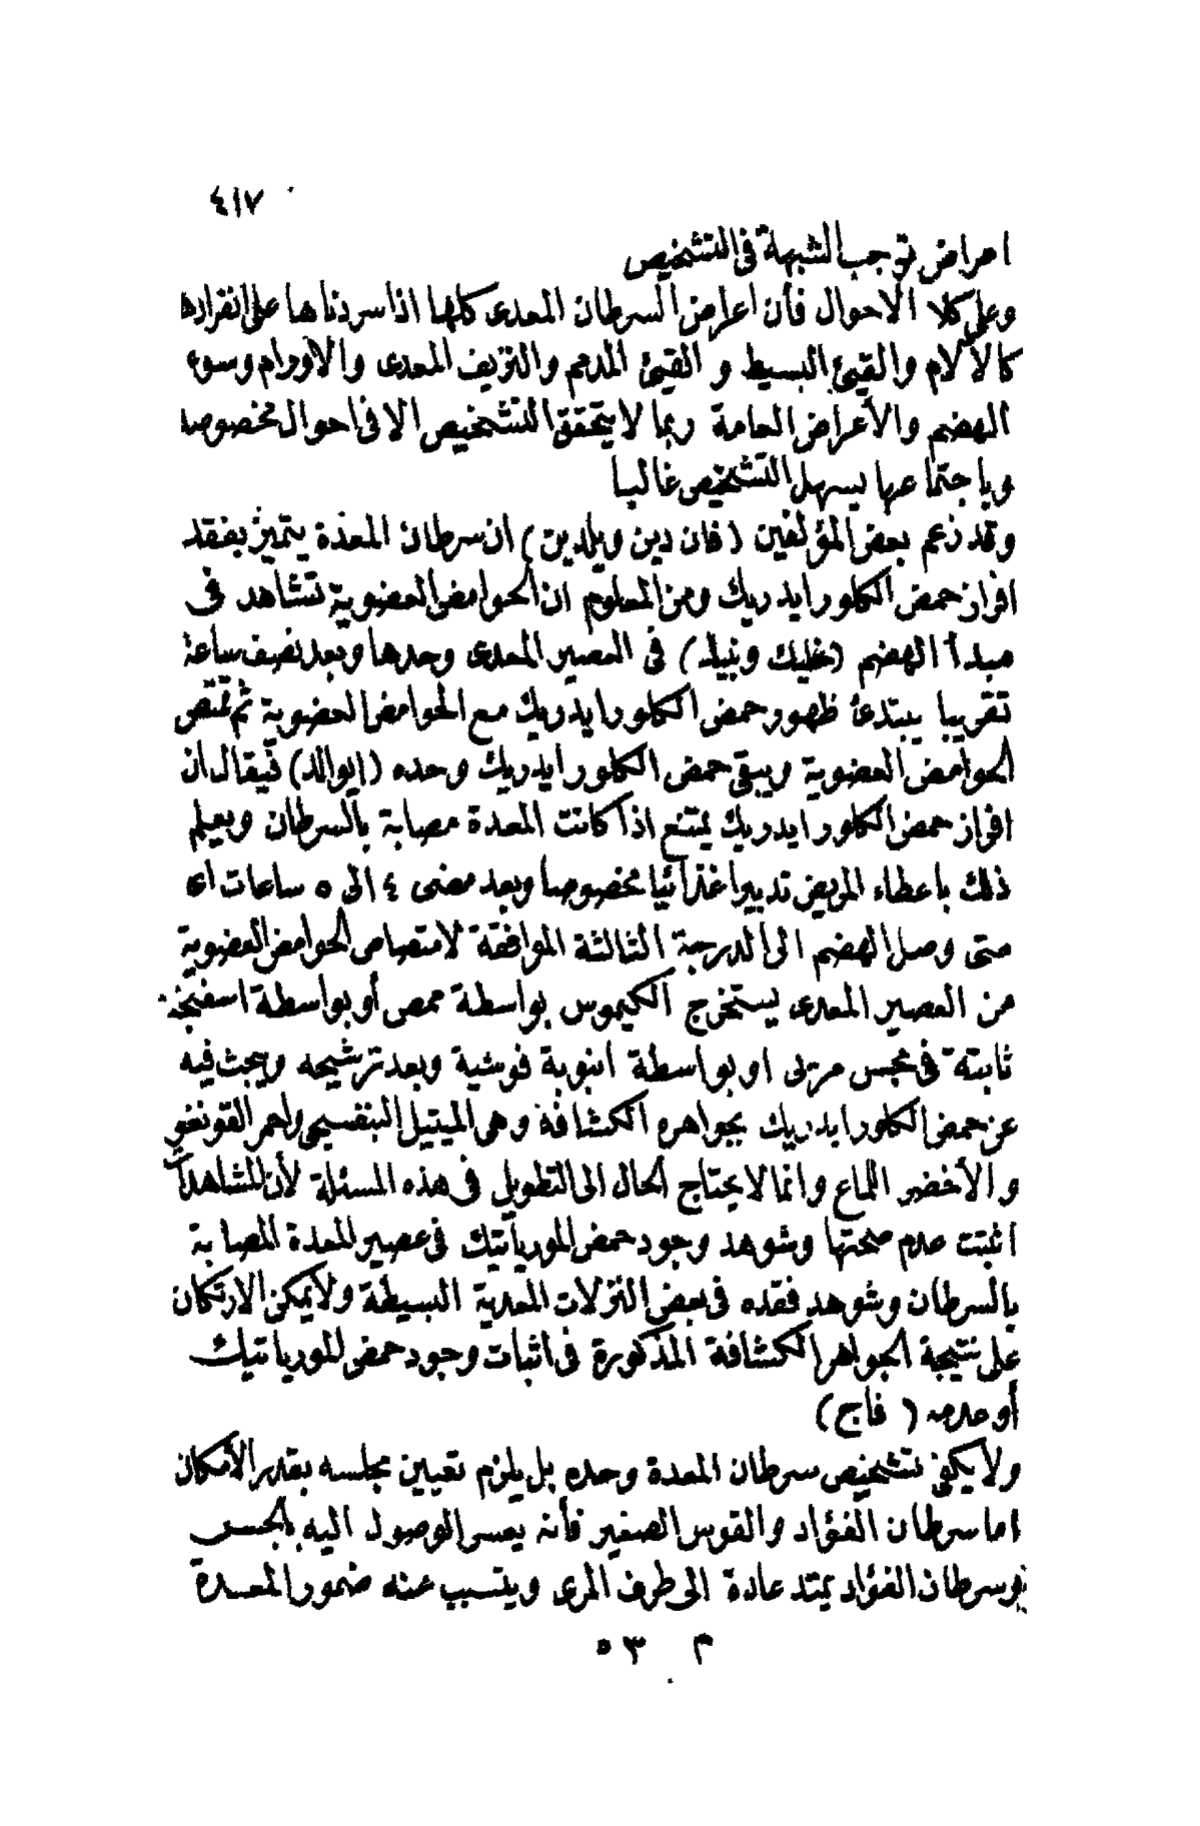 ٤١٧
اعراض توجب الشبهة فى التشخيص
وعلى كلا الاحوال فأن اعراض السرطان المعدى كلها اذا سردناها على انفرادها
كالآلام والقيئ البسيط و القيئ المدمم والنزيف المعدى والاورام وسوء
الهضم والأعراض العامة ربما لا يتحقق التشخيص الا فى احوال مخصوصه
وباجتماعها يسهل التشخيص غالبا
وقد زعم بعض المؤلفين (فان دين ويلدين) ان سرطان المعدة يتميز بفقد
افراز حمض الكلورايدريك ومن المعلوم ان الحوامض العضوية تشاهد فى
مبدأ الهضم (غليك ونبيله) فى العصير المعدى وحدها وبعد نصف ساعة
تقريبا يبتدئ ظهور حمض الكلورايدريك مع الحوامض العضوية ثم تمتص
الحوامض العضوية ويبقى حمض الكلورايدريك وحده (ايوالد) فيقال ان
افراز حمض الكلورايدريك يمتنع اذا كانت المعدة مصابة بالسرطان ويعلم
ذلك باعطاء المريض تدبيرا غذائيا مخصوصا وبعد مضى ٤ الى ٥ ساعات اى
متى وصل الهضم الى الدرجة الثالثة الموافقة لامتصاص الحوامض العضوية
من العصير المعدى يستخرج الكيموس بواسطة ممص أو بواسطة اسفنجة
ثابتة فى مجس مريئى او بواسطة انبوبة فوشية وبعد ترشيحه ويبحث فيه
عن حمض الكلورايدريك بجواهره الكشافة وهى الميتيل البنفسجى واحمر القونغو
والأخضر اللماع وانما لا يحتاج الحال الى التطويل فى هذه المسئلة لأن المشاهدات
اثبتت عدم صحتها وشوهد وجود حمض الموريآتيك فى عصير المعدة المصابة
بالسرطان وشوهد فقده فى بعض النزلات المعدية البسيطة ولا يمكن الارتكان
على نتيجة الجواهر الكشافة المذكورة فى اثبات وجود حمض الموريآتيك
أو عدمه ( فاج )
ولا يكفى تشخيص سرطان المعدة وحده بل يلزم تعيين مجلسه بقدر الأمكان
اما سرطان الفؤاد والقوس الصغير فأنه يعسر الوصول اليه بالجس
وسرطان الفؤاد يمتد عادة الى طرف المرى ويتسبب عنه ضمور المعدة
م ٥٣